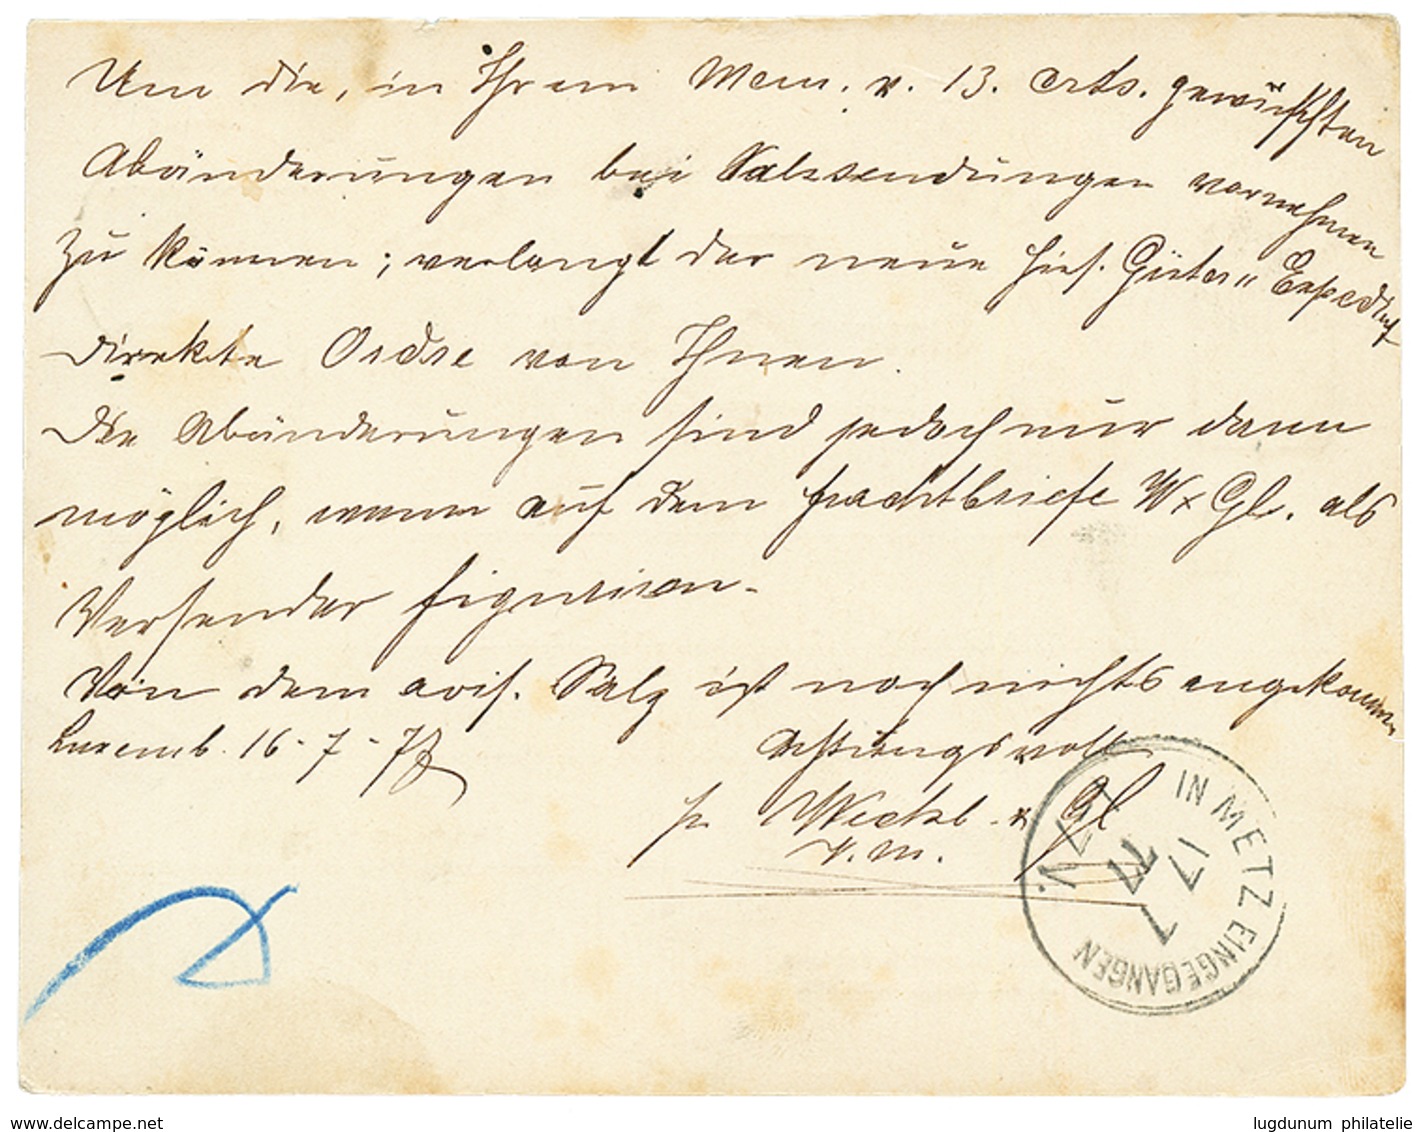 Um die, in Ihrem Mem. v. 13. crts. gewünschten
Abänderungen bei Salzsendungen vornehmen
zu können; verlangt der neue hies. Güter= Expedient
direkte Ordre von Ihnen.
Die Abänderungen sind jedoch nur dann
möglich, wenn auf dem Frachtbriefe W & Gl. als
Versender figuriren.
Von dem avis. Salz ist noch nichts angekommen
Luxemb. 16-7-77
Achtungsvoll
pr Weckb. & Gl
IN METZ EINGEGANGEN
17
7
77
V.
www.delcampe.net
lugdunum philatelie